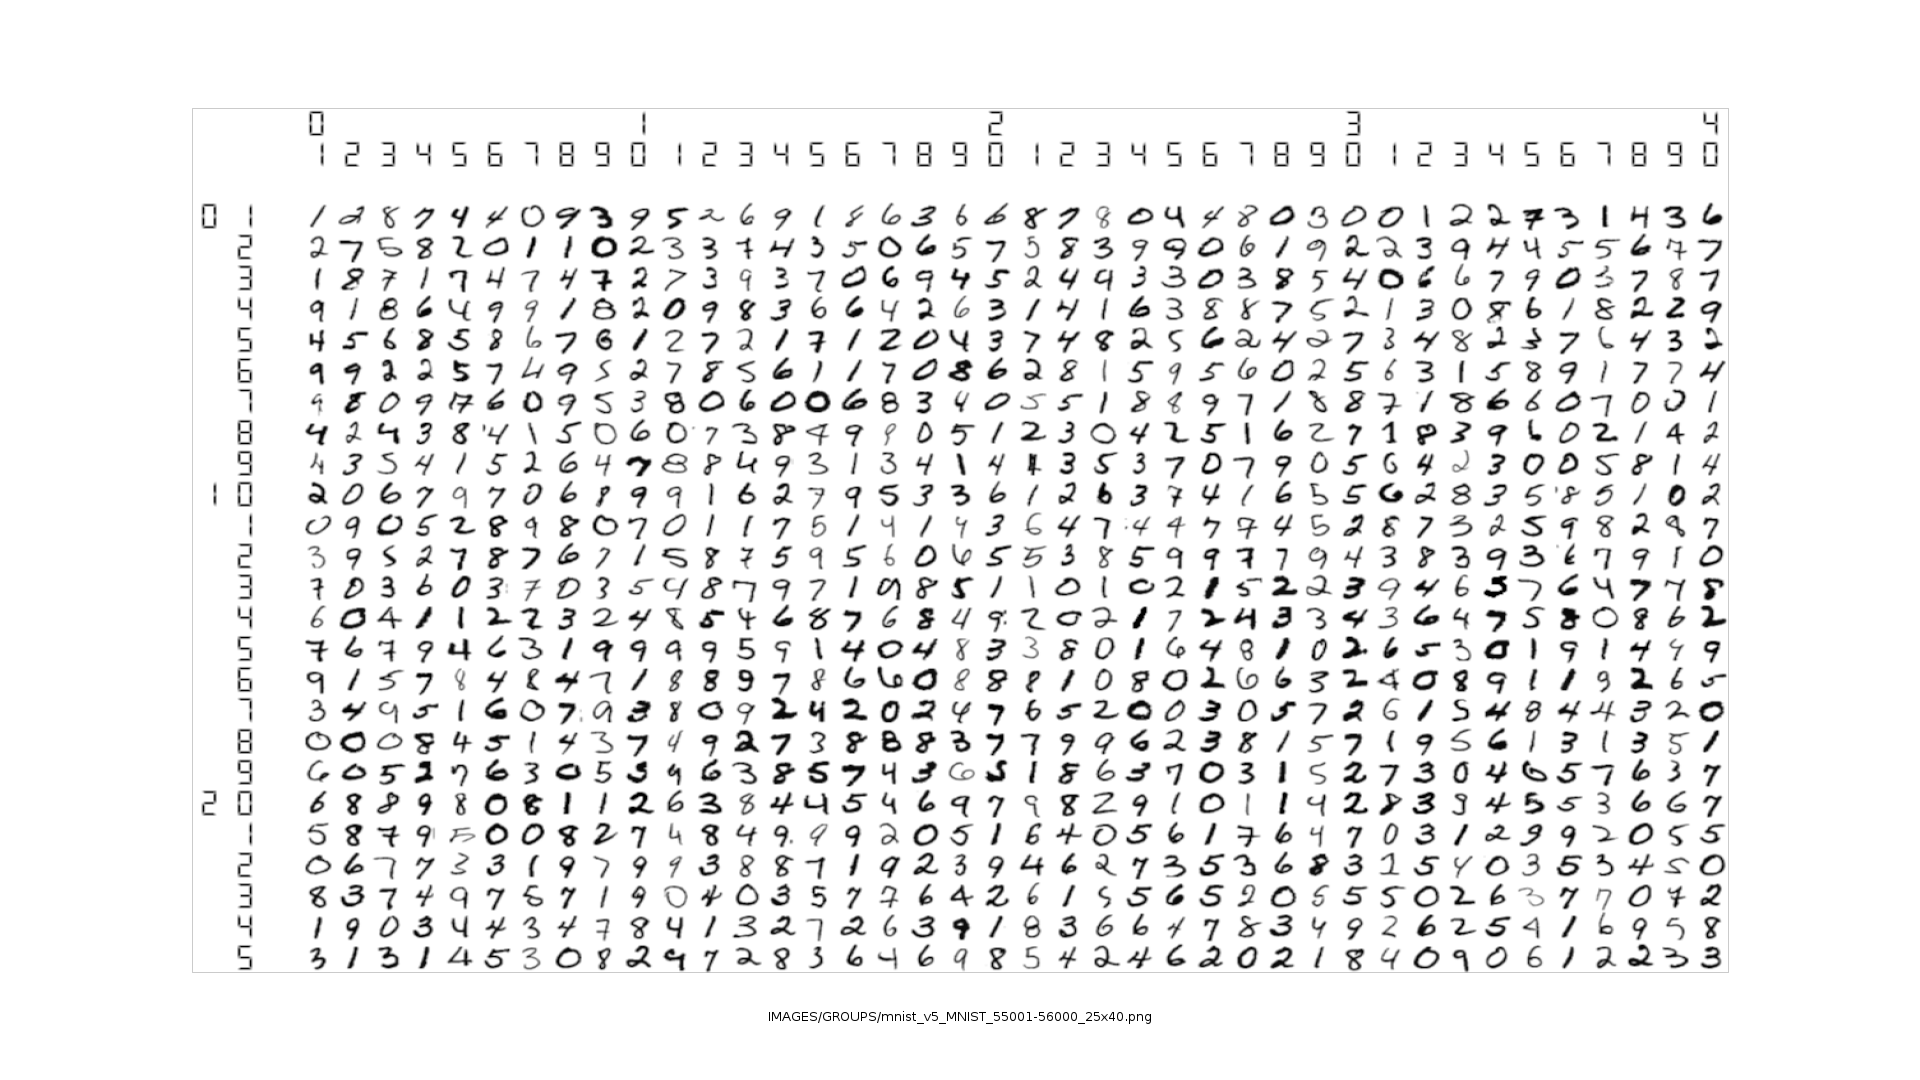 0 1 2 3 4
1 2 3 4 5 6 7 8 9 0 1 2 3 4 5 6 7 8 9 0 1 2 3 4 5 6 7 8 9 0 1 2 3 4 5 6 7 8 9 0
0 1 1 2 8 7 4 4 0 9 3 9 5 2 6 9 1 8 6 3 6 6 8 7 8 0 4 4 8 0 3 0 0 1 2 2 7 3 1 4 3 6
2 2 7 5 8 2 0 1 1 0 2 3 3 7 4 3 5 0 6 5 7 5 8 3 9 9 0 6 1 9 2 2 3 9 4 4 5 5 6 7 7
3 1 8 7 1 7 4 7 4 7 2 7 3 9 3 7 0 6 9 4 5 2 4 9 3 3 0 3 8 5 4 0 6 6 7 9 0 3 7 8 7
4 9 1 8 6 4 9 9 1 8 2 0 9 8 3 6 6 4 2 6 3 1 4 1 6 3 8 8 7 5 2 1 3 0 8 6 1 8 2 2 9
5 4 5 6 8 5 8 6 7 6 1 2 7 2 1 7 1 2 0 4 3 7 4 8 2 5 6 2 4 2 7 3 4 8 2 3 7 6 4 3 2
6 9 9 2 2 5 7 4 9 5 2 7 8 5 6 1 1 7 0 8 6 2 8 1 5 9 5 6 0 2 5 6 3 1 5 8 9 1 7 7 4
7 9 8 0 9 17 6 0 9 5 3 8 0 6 0 0 6 8 3 4 0 5 5 1 8 8 9 7 1 8 8 7 1 8 6 6 0 7 0 0 1
8 4 2 4 3 8 4 1 5 0 6 0 7 3 8 9 9 9 0 5 1 2 3 0 4 2 5 1 6 2 7 1 8 3 9 6 0 2 1 4 2
9 4 3 5 4 1 5 2 6 4 7 8 8 4 9 3 1 3 4 1 4 1 3 5 3 7 0 7 9 0 5 6 4 2 3 0 0 5 8 1 4
1 0 2 0 6 7 9 7 0 6 8 9 9 1 6 2 7 9 5 3 3 6 1 2 6 3 7 4 1 6 5 5 6 2 8 3 5 8 5 1 0 2
1 0 9 0 5 2 8 9 8 0 7 0 1 1 7 5 1 4 1 4 3 6 4 7 4 4 7 7 4 5 2 8 7 3 2 5 9 8 2 8 7
2 3 9 5 2 7 8 7 6 7 1 5 8 7 5 9 5 6 0 6 5 5 3 8 5 9 9 7 7 9 4 3 8 3 9 3 6 7 9 1 0
3 7 0 3 6 0 3 7 0 3 5 4 8 7 9 7 1 9 8 5 1 1 0 1 0 2 1 5 2 2 3 9 4 6 5 7 6 4 7 7 8
4 6 0 4 1 1 2 2 3 2 4 8 5 4 6 8 7 6 8 4 9 2 0 2 1 7 2 4 3 3 4 3 6 4 7 5 8 0 8 6 2
5 7 6 7 9 4 6 3 1 9 9 9 9 5 9 1 4 0 4 8 3 3 8 0 1 6 4 8 1 0 2 6 5 3 0 1 9 1 4 9 9
6 9 1 5 7 8 4 8 4 7 1 8 8 9 7 8 6 6 0 8 8 8 1 0 8 0 2 6 6 3 2 4 0 8 9 1 1 9 2 6 5
7 3 4 9 5 1 6 0 7 9 3 8 0 9 2 4 2 0 2 4 7 6 5 2 0 0 3 0 5 7 2 6 1 5 4 8 4 4 3 2 0
8 0 0 0 8 4 5 1 4 3 7 4 9 2 7 3 8 8 8 3 7 7 9 9 6 2 3 8 1 5 7 1 9 5 6 1 3 1 3 5 1
9 6 0 5 2 7 6 3 0 5 3 9 6 3 8 5 7 4 3 6 5 1 8 6 3 7 0 3 1 5 2 7 3 0 4 6 5 7 6 3 7
2 0 6 8 8 9 8 0 8 1 1 2 6 3 8 4 4 5 4 6 9 7 9 8 2 9 1 0 1 1 4 2 8 3 9 4 5 5 3 6 6 7
1 5 8 7 9 5 0 0 8 2 7 4 8 4 9 9 9 2 0 5 1 6 4 0 5 6 1 7 6 4 7 0 3 1 2 9 9 2 0 5 5
2 0 6 7 7 3 3 1 9 7 9 9 3 8 8 7 1 9 2 3 9 4 6 2 7 3 5 3 6 8 3 1 5 4 0 3 5 3 4 5 0
3 8 3 7 4 9 7 8 7 1 9 0 4 0 3 5 7 7 6 4 2 6 1 5 5 6 5 2 0 5 5 5 0 2 6 3 7 7 0 7 2
4 1 9 0 3 4 4 3 4 7 8 4 1 3 2 7 2 6 3 9 1 8 3 6 6 4 7 8 3 4 9 2 6 2 5 4 1 6 9 5 8
5 3 1 3 1 4 5 3 0 8 2 9 7 2 8 3 6 4 6 9 8 5 4 2 4 6 2 0 2 1 8 4 0 9 0 6 1 2 2 3 3
IMAGES/GROUPS/mnist_v5_MNIST_55001-56000_25x40.png